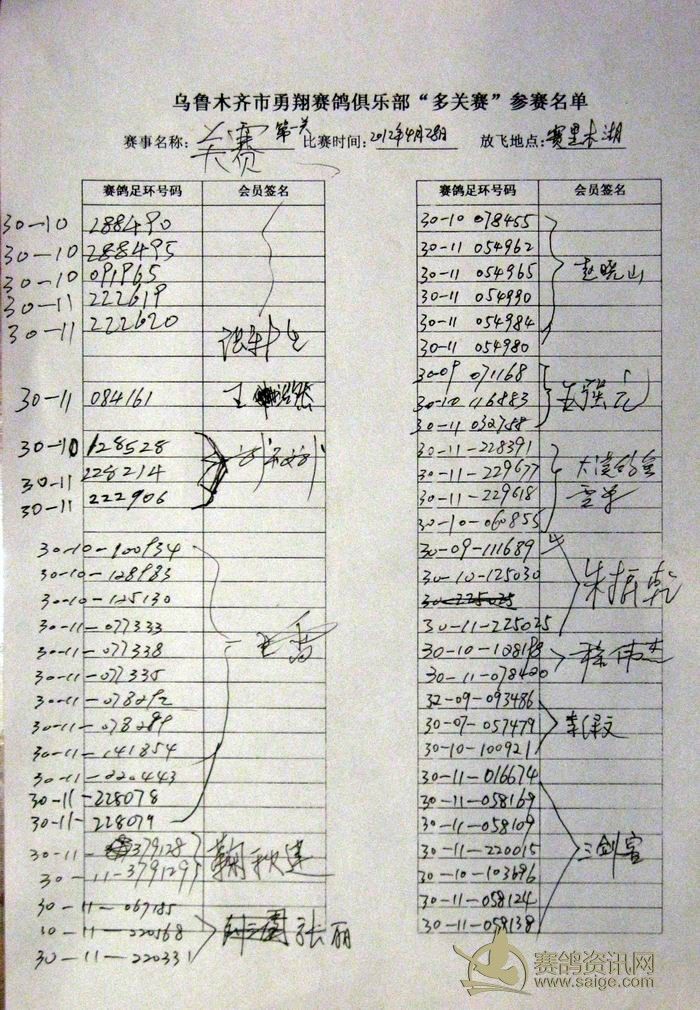 乌鲁木齐市勇翔赛鸽俱乐部“多关赛”参赛名单
赛事名称: 关赛 第一关 比赛时间: 2012年4月28日 放飞地点: 赛里木湖
赛鸽足环号码 会员签名
30-10 288490
30-10 288495
30-10 091965
30-11 222619
30-11 222620
30-11 084161 王
30-10 128528
30-11 228214
30-11 222906
30-10-100934
30-10-128983
30-10-125130
30-11-077333
30-11-077338
30-11-077335
30-11-078292
30-11-078289
30-11-141854
30-11-220443
30-11-228078
30-11-228079
王雷
30-11-379128
30-11-379129
鞠秋建
30-11-067185
30-11-220568
30-11-220331
张丽
赛鸽足环号码 会员签名
30-10 078455
30-11 054962
30-11 054965
30-11 054990
30-11 054984
30-11 054980
赵晓山
30-09 071168
30-10 116883
30-11 032788
30-11-228391
30-11-229677
30-11-229618
30-10-060855
30-09-111689
30-10-125030
30-225025
30-11-225025
朱振乾
30-10-128198
30-11-078420
徐伟杰
32-09-093486
30-07-057479
30-10-100921
30-11-016674
30-11-058169
30-11-058109
30-11-220015
30-10-103696
30-11-058124
30-11-058138
三剑客
赛鸽资讯网
www.saige.com